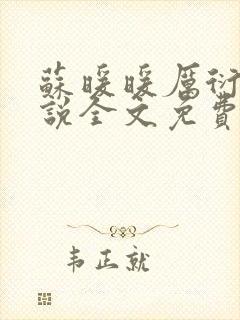 蘇暖暖厲衍
說全文免費
韦正就